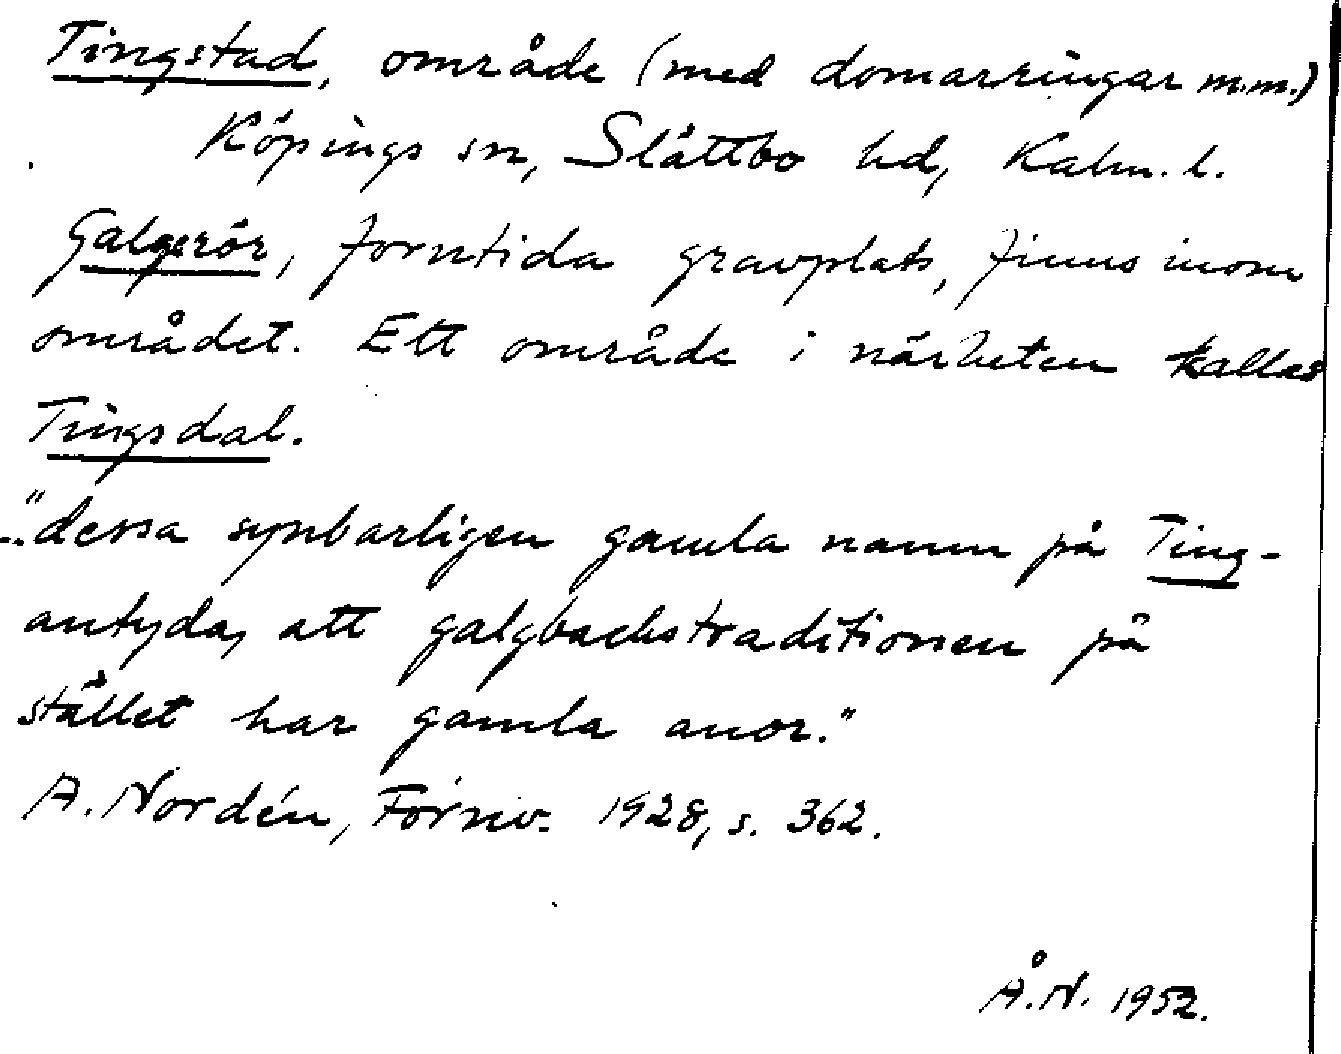 Tingstad, område (med domarringar m.m.)
Köpings sn, Slättbo hd, Kalm. l.
Galgerör, forntida gravplats, finns inom
området. Ett område i närheten kallas
Tingsdal.
..."dessa synbarligen gamla namn på Ting-
antyda, att galgbackstraditionen på
stället har gamla anor."
A. Nordén, Fornv. 1928, s. 362.
Å.N. 1952.